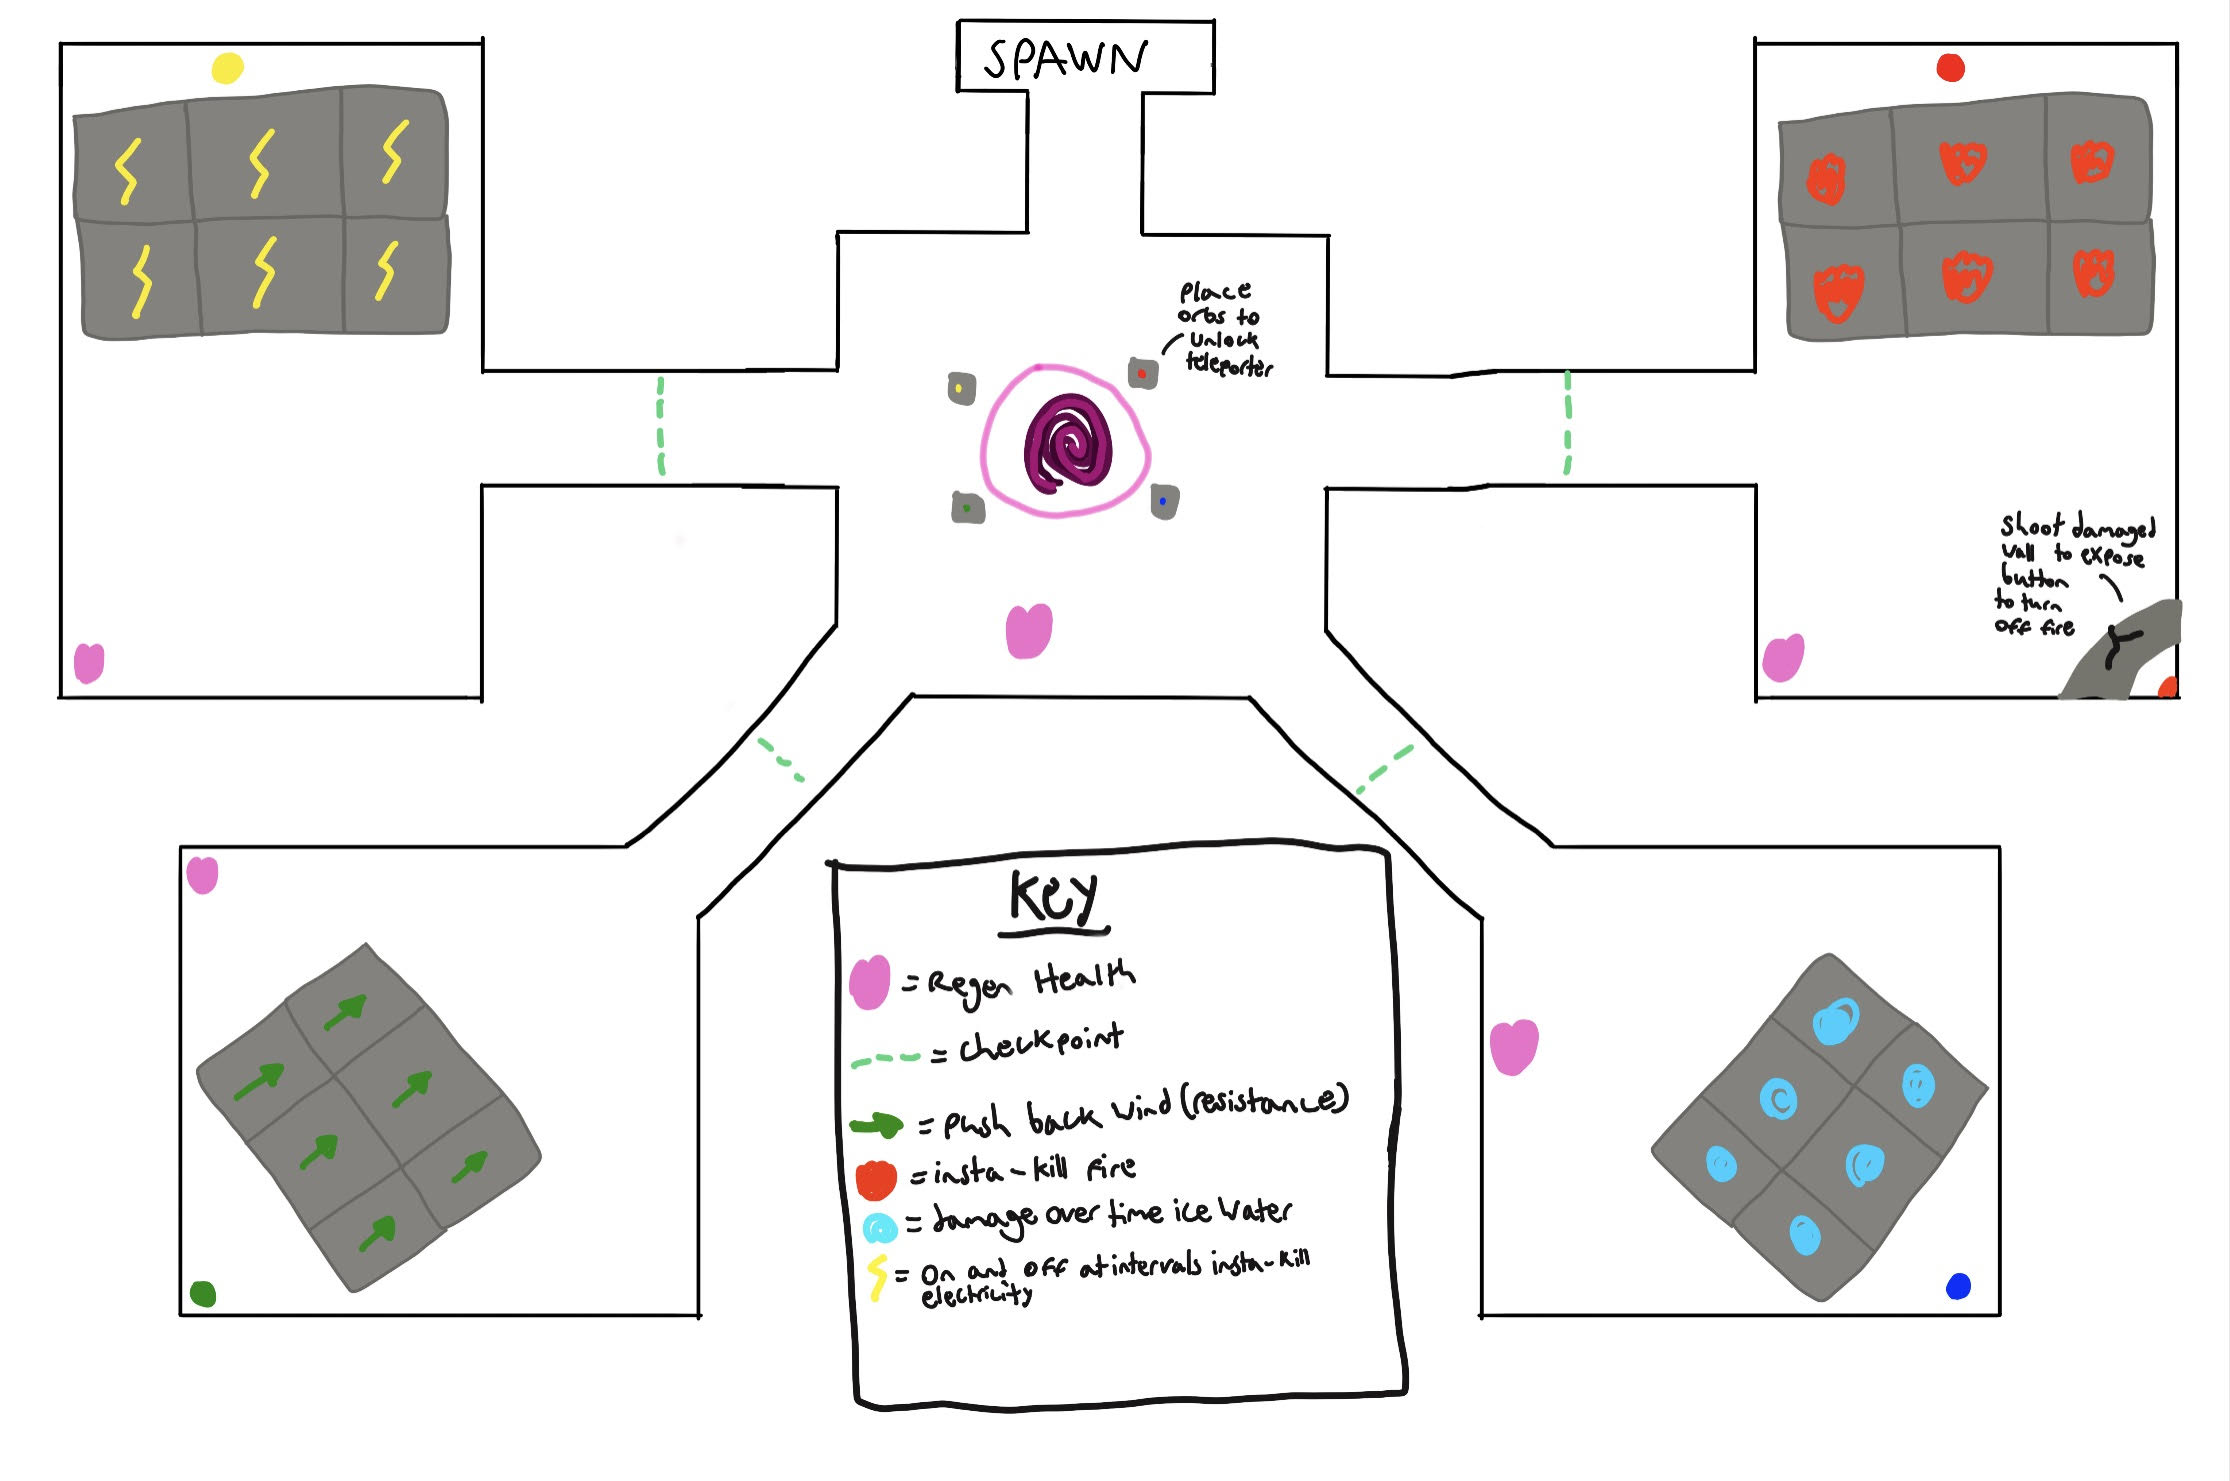 SPAWN
Place
orbs to
unlock
teleporter
Shoot damaged
wall to expose
button
to turn
off fire
Key
= Regen Health
= Checkpoint
= Push back Wind (resistance)
= insta-kill fire
= damage over time ice Water
= On and off at intervals insta-kill
electricity